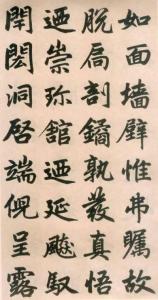 如面墻壁惟帛矚故
脫扃剖鐍孰發真悟
迺崇珎館迺延飈馭
閈閎洞啓端倪呈露